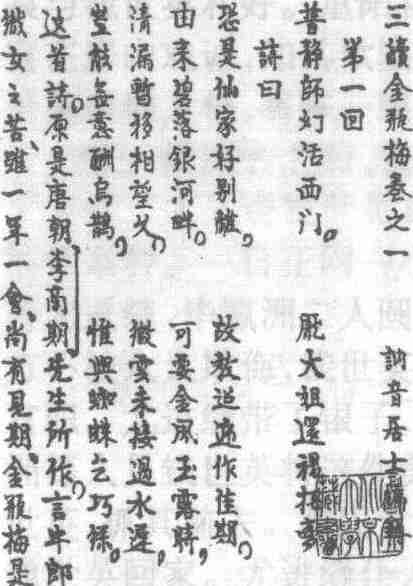 三續金瓶梅卷之一 訥音居士
第一回
普静師幻活西门。 厖大姐還
詩曰
恐是仙家好别離， 故教迢遞作佳期。
由来碧落銀河畔。 可要金風玉露時，
清漏暫移相望久， 微雲未接過水遲，
豈能無意酬烏鵲， 惟與蜘蛛乞巧絲。
这首詩。原是唐朝、李商期先生所作。言牛郎
女之苦、雖一年一會、尚有見期、金瓶梅是